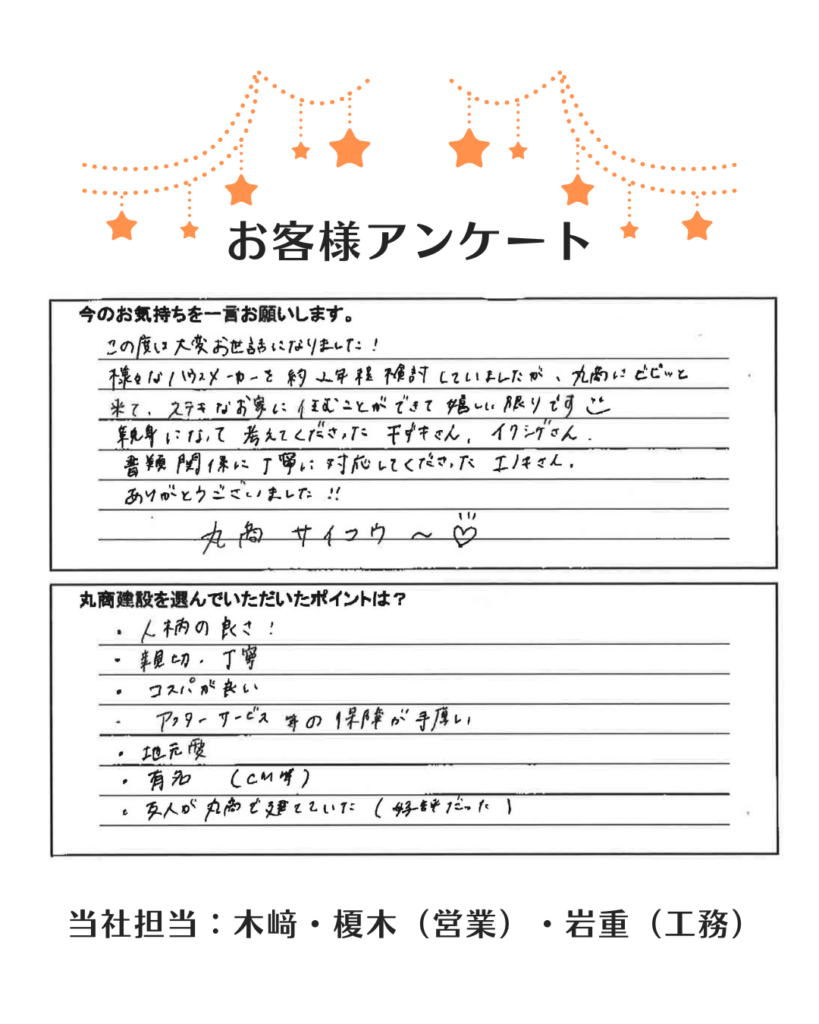 お客様アンケート
今のお気持ちを一言お願いします。
この度は大変お世話になりました!
様々なハウスメーカーを約2年程検討していましたが、丸商にビビッと
来て、ステキなお家に住むことができて嬉しい限りです
親身になって考えてくださったキザキさん、イワシゲさん.
書類関係に丁寧に対応してくださったエノキさん.
ありがとうございました!!
丸商 サイコウ ~ ♡
丸商建設を選んでいただいたポイントは?
・人柄の良さ!
・親切・丁寧
・コスパが良い
・アフターサービス等の保障が手厚い
・地元愛
・有名 (CM等)
・友人が丸商で建てていた (好評だった)
当社担当:木﨑・榎木(営業)・岩重(工務)